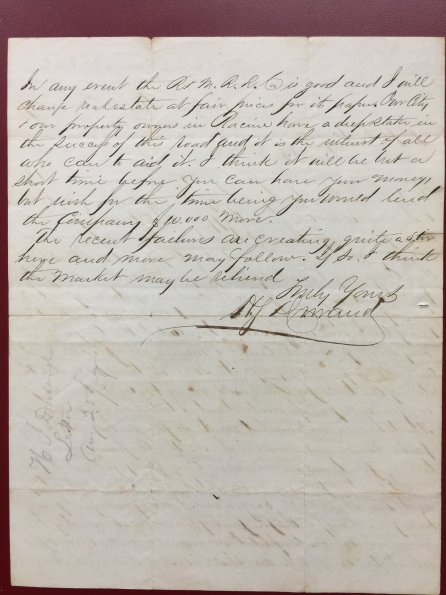 In any event the R & M. R. R. Co is good and I will
change real estate at fair prices for its paper. Our City
& our property owners in Racine have a deep stake in
the success of this road and it is the interest of all
who can to aid it. I think it will be but a
short time before you can have your money
but wish for the time being you would lend
the Company $10.000 more.
The recent failures are creating quite a stir
here and more may follow. If so, I think
the market may be relieved
Truly Yours
H J Durand
H J Durand
Letter
Aug 28/57